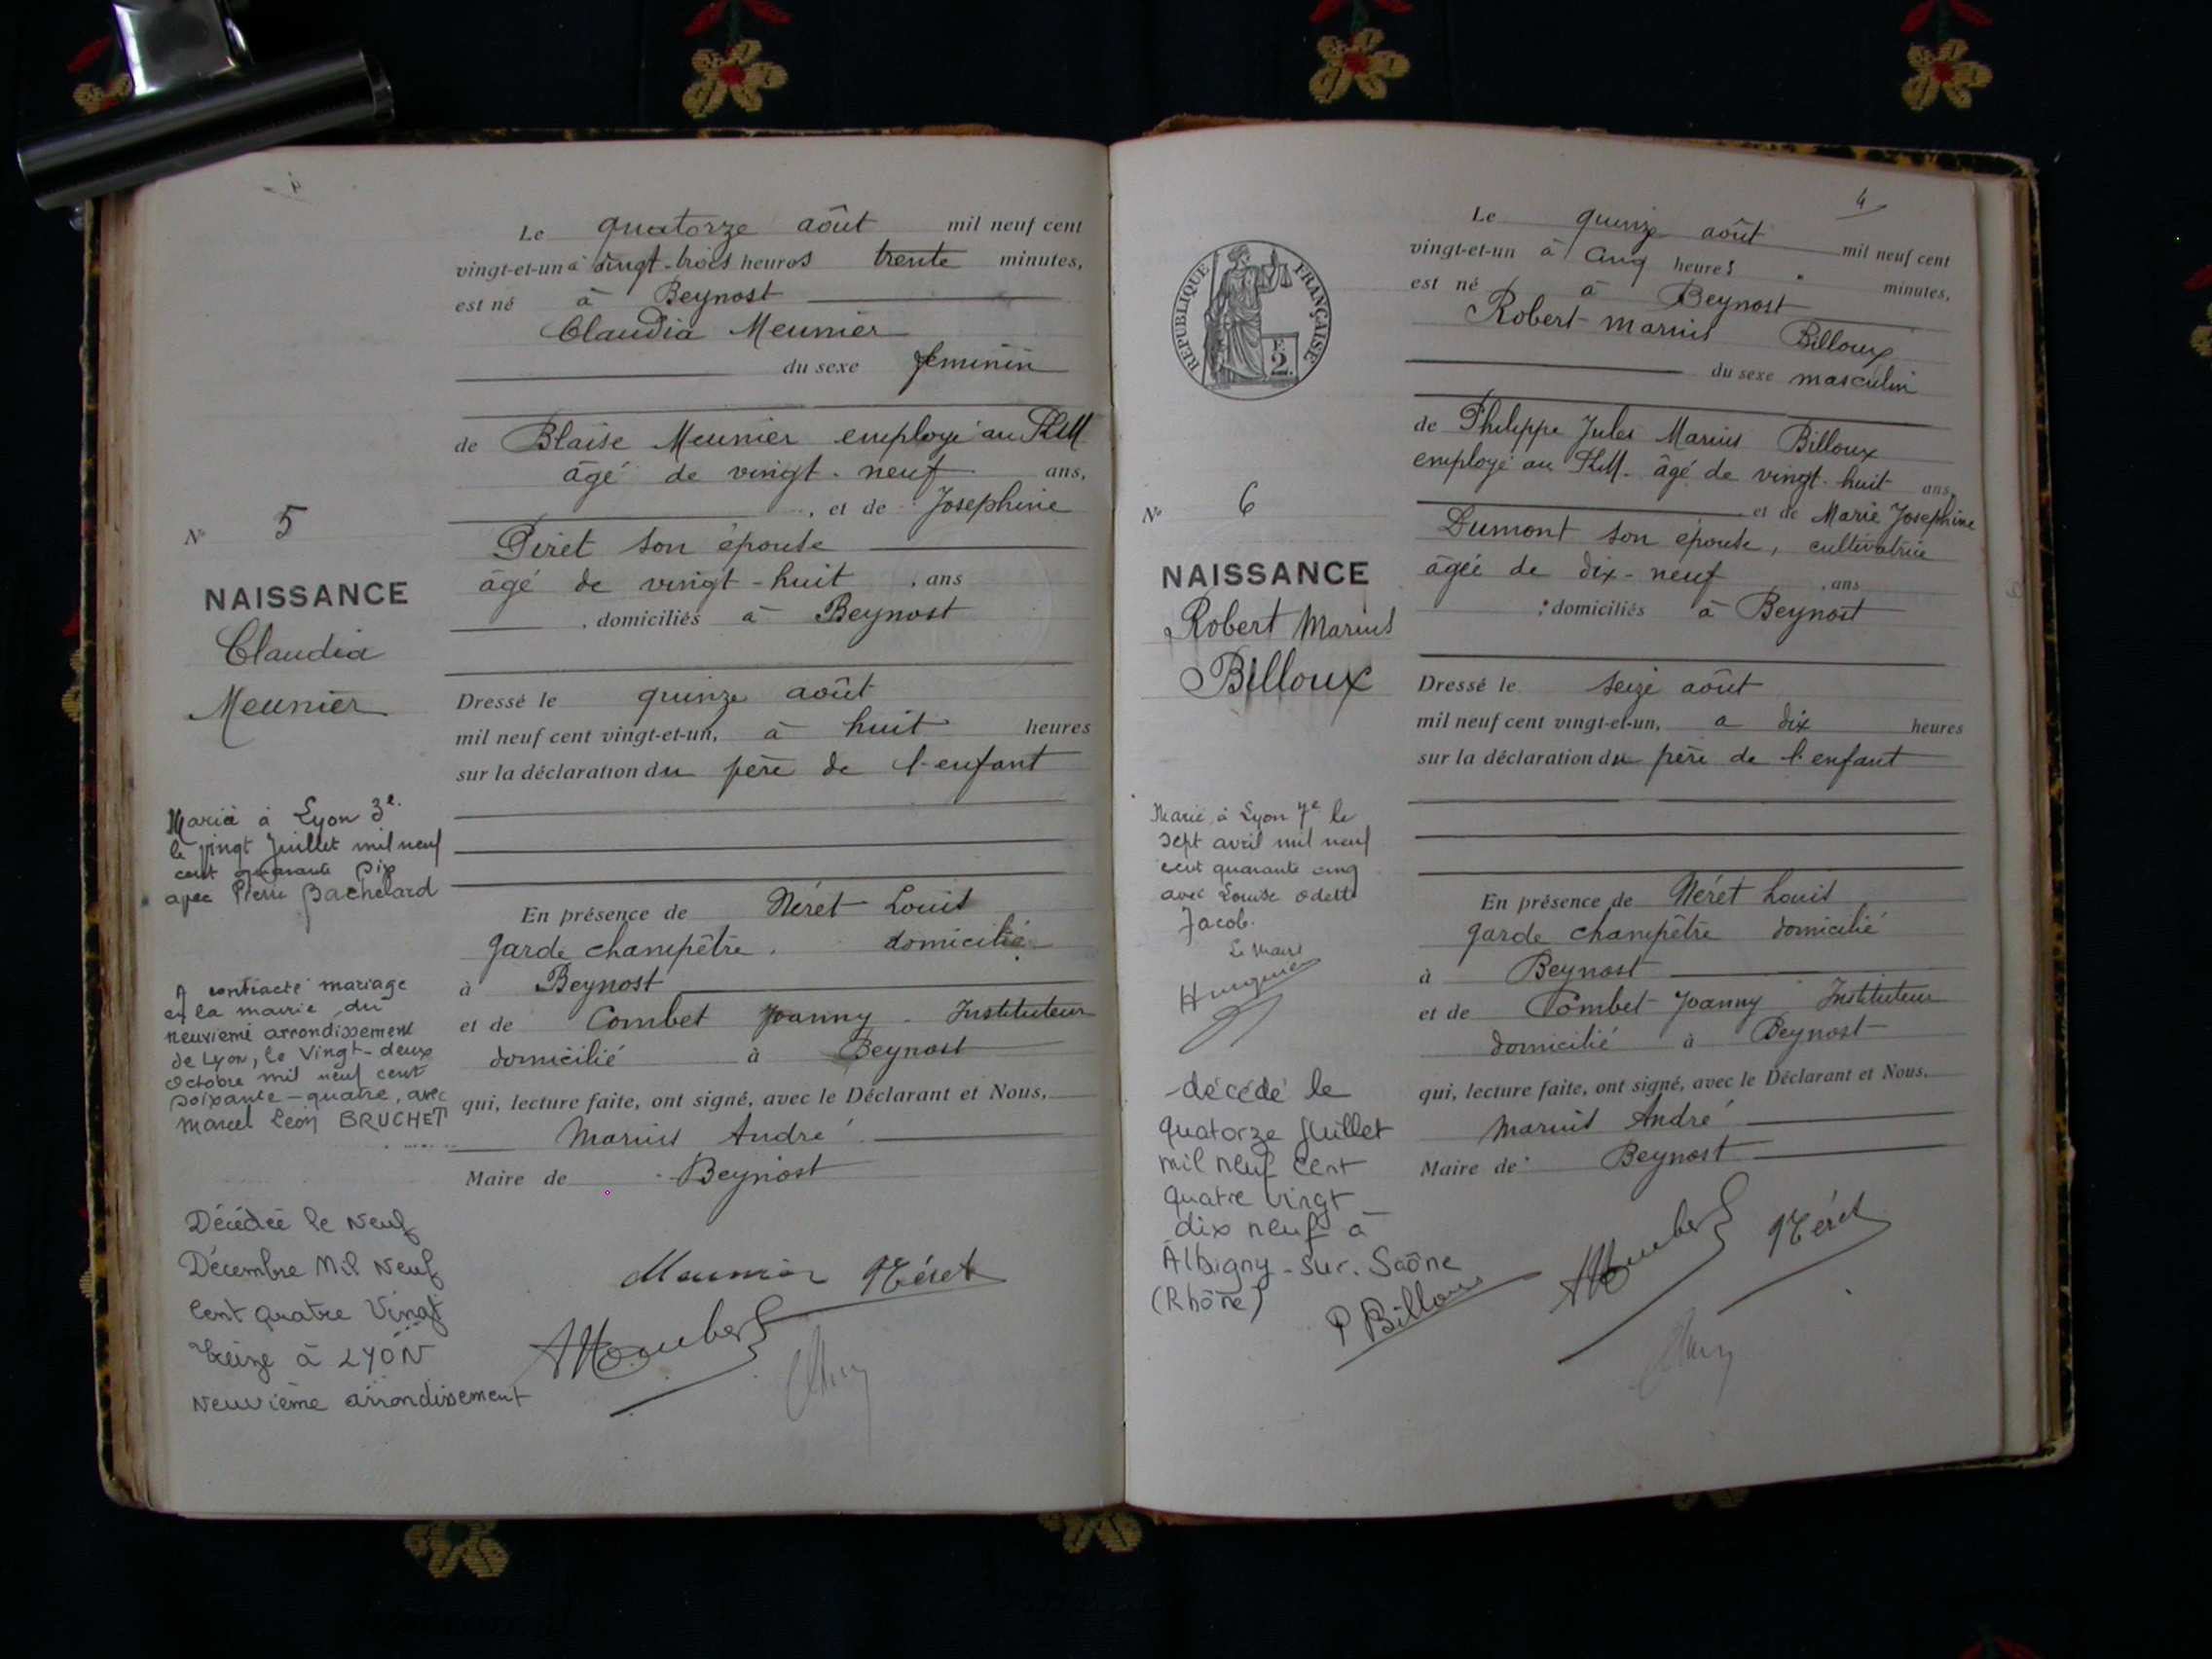 Le quatorze août mil neuf cent
vingt-et-un à vingt-trois heures trente minutes,
est né à Beynost
Claudia Meunier
du sexe feminin
de Blaise Meunier employé au PLM
âgé de vingt-neuf ans,
, et de Josephine
Piret son épouse
âgé de vingt-huit , ans
, domiciliés à Beynost
Dressé le quinze août
mil neuf cent vingt-et-un, à huit heures
sur la déclaration du père de l'enfant
En présence de Néret Louis
garde champêtre. domicilié
à Beynost
et de Combet Joanny Instituteur
domicilié à Beynost
qui, lecture faite, ont signé, avec le Déclarant et Nous,
Marius André
Maire de Beynost
Meunier Néret
N° 5
NAISSANCE
Claudia
Meunier
Mariée à Lyon 3e
le vingt Juillet mil neuf
cent quarante six
avec Pierre Bachelard
A contracté mariage
en la mairie du
neuvième arrondissement
de Lyon, le Vingt-deux
Octobre mil neuf cent
soixante-quatre, avec
Marcel Léon BRUCHET
Décédée le Neuf
Décembre Mil Neuf
Cent Quatre Vingt
Treize à LYON
Neuvième arrondissement
4
Le quinze août mil neuf cent
vingt-et-un à cinq heures minutes,
est né à Beynost
Robert-Marius Billoux
du sexe masculin
de Philippe Jules Marius Billoux
employé au PLM. âgé de vingt-huit ans,
et de Marie Josephine
Dumont son épouse, cultivatrice
âgée de dix-neuf , ans
: domiciliés à Beynost
Dressé le seize août
mil neuf cent vingt-et-un, a dix heures
sur la déclaration du père de l'enfant
En présence de Néret Louis
garde champêtre domicilié
à Beynost
et de Combet Joanny Instituteur
domicilié à Beynost
qui, lecture faite, ont signé, avec le Déclarant et Nous,
Marius André
Maire de Beynost
P Billoux Néret
RÉPUBLIQUE FRANÇAISE
F
2.
N° 6
NAISSANCE
Robert Marius
Billoux
Marié, à Lyon 7e le
sept avril mil neuf
cent quarante cinq
avec Louise Odette
Jacob.
Le Maire
-décédé le
quatorze Juillet
mil neuf cent
quatre vingt
dix neuf à
Albigny-sur-Saône
(Rhône)